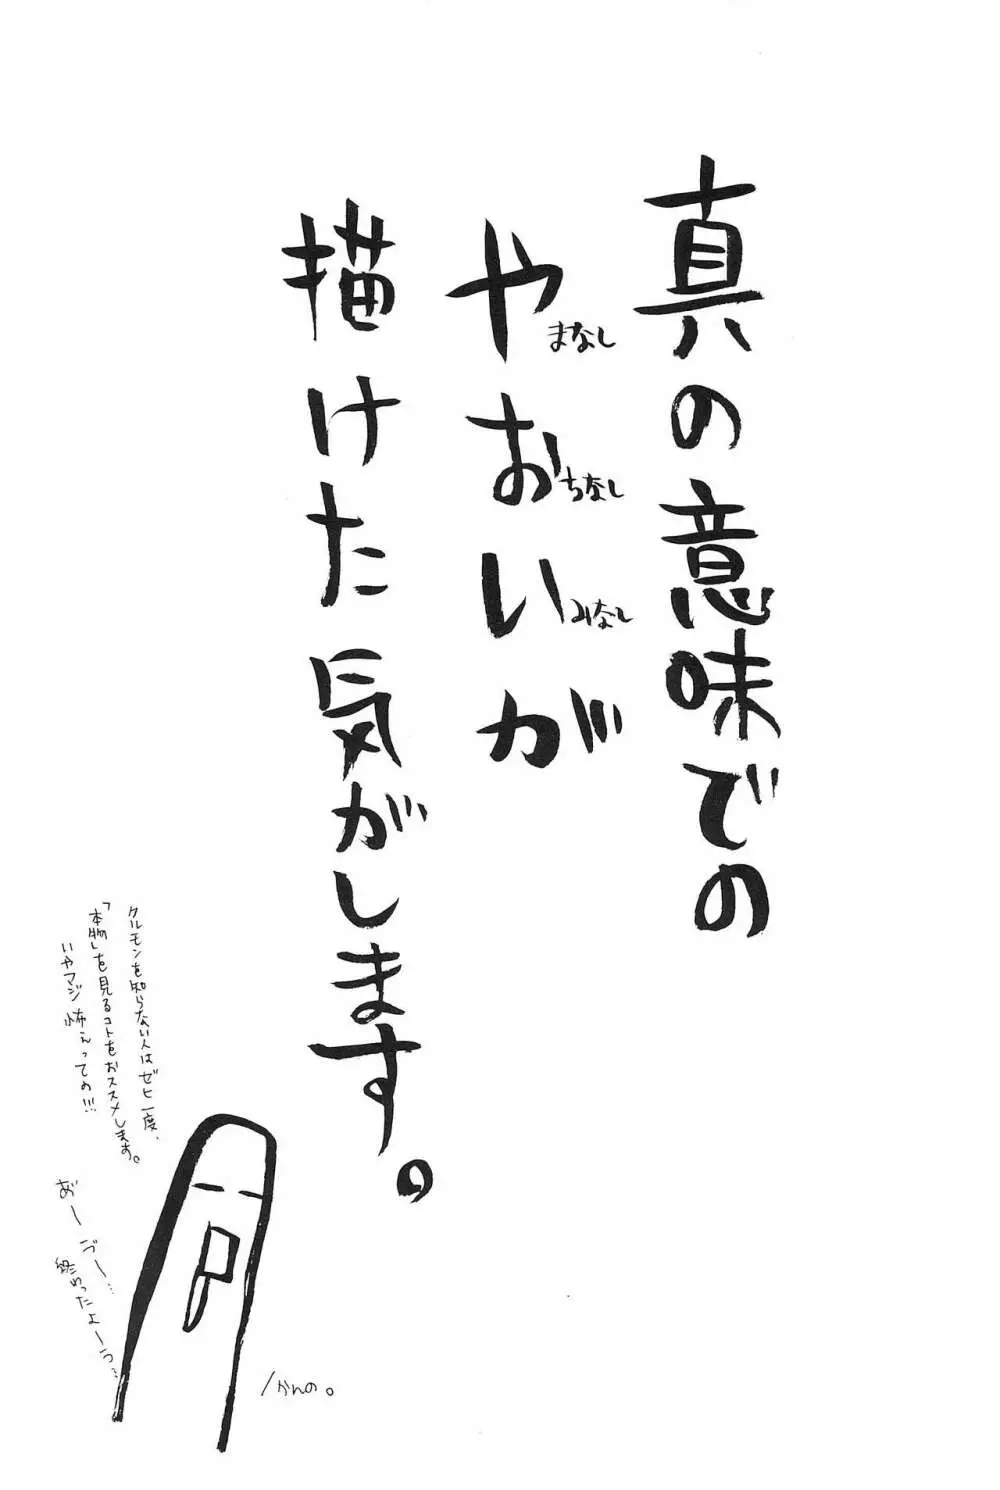 真の意味での
やまなし
おちなし
いみなしが
描けた気がします。
クルモンを知らない人はゼヒ一度、
「本物」を見るコトをおススメします。
いやマジ怖えっての!!!
あ゛ー づー…
終わったよーう…
/かんの。